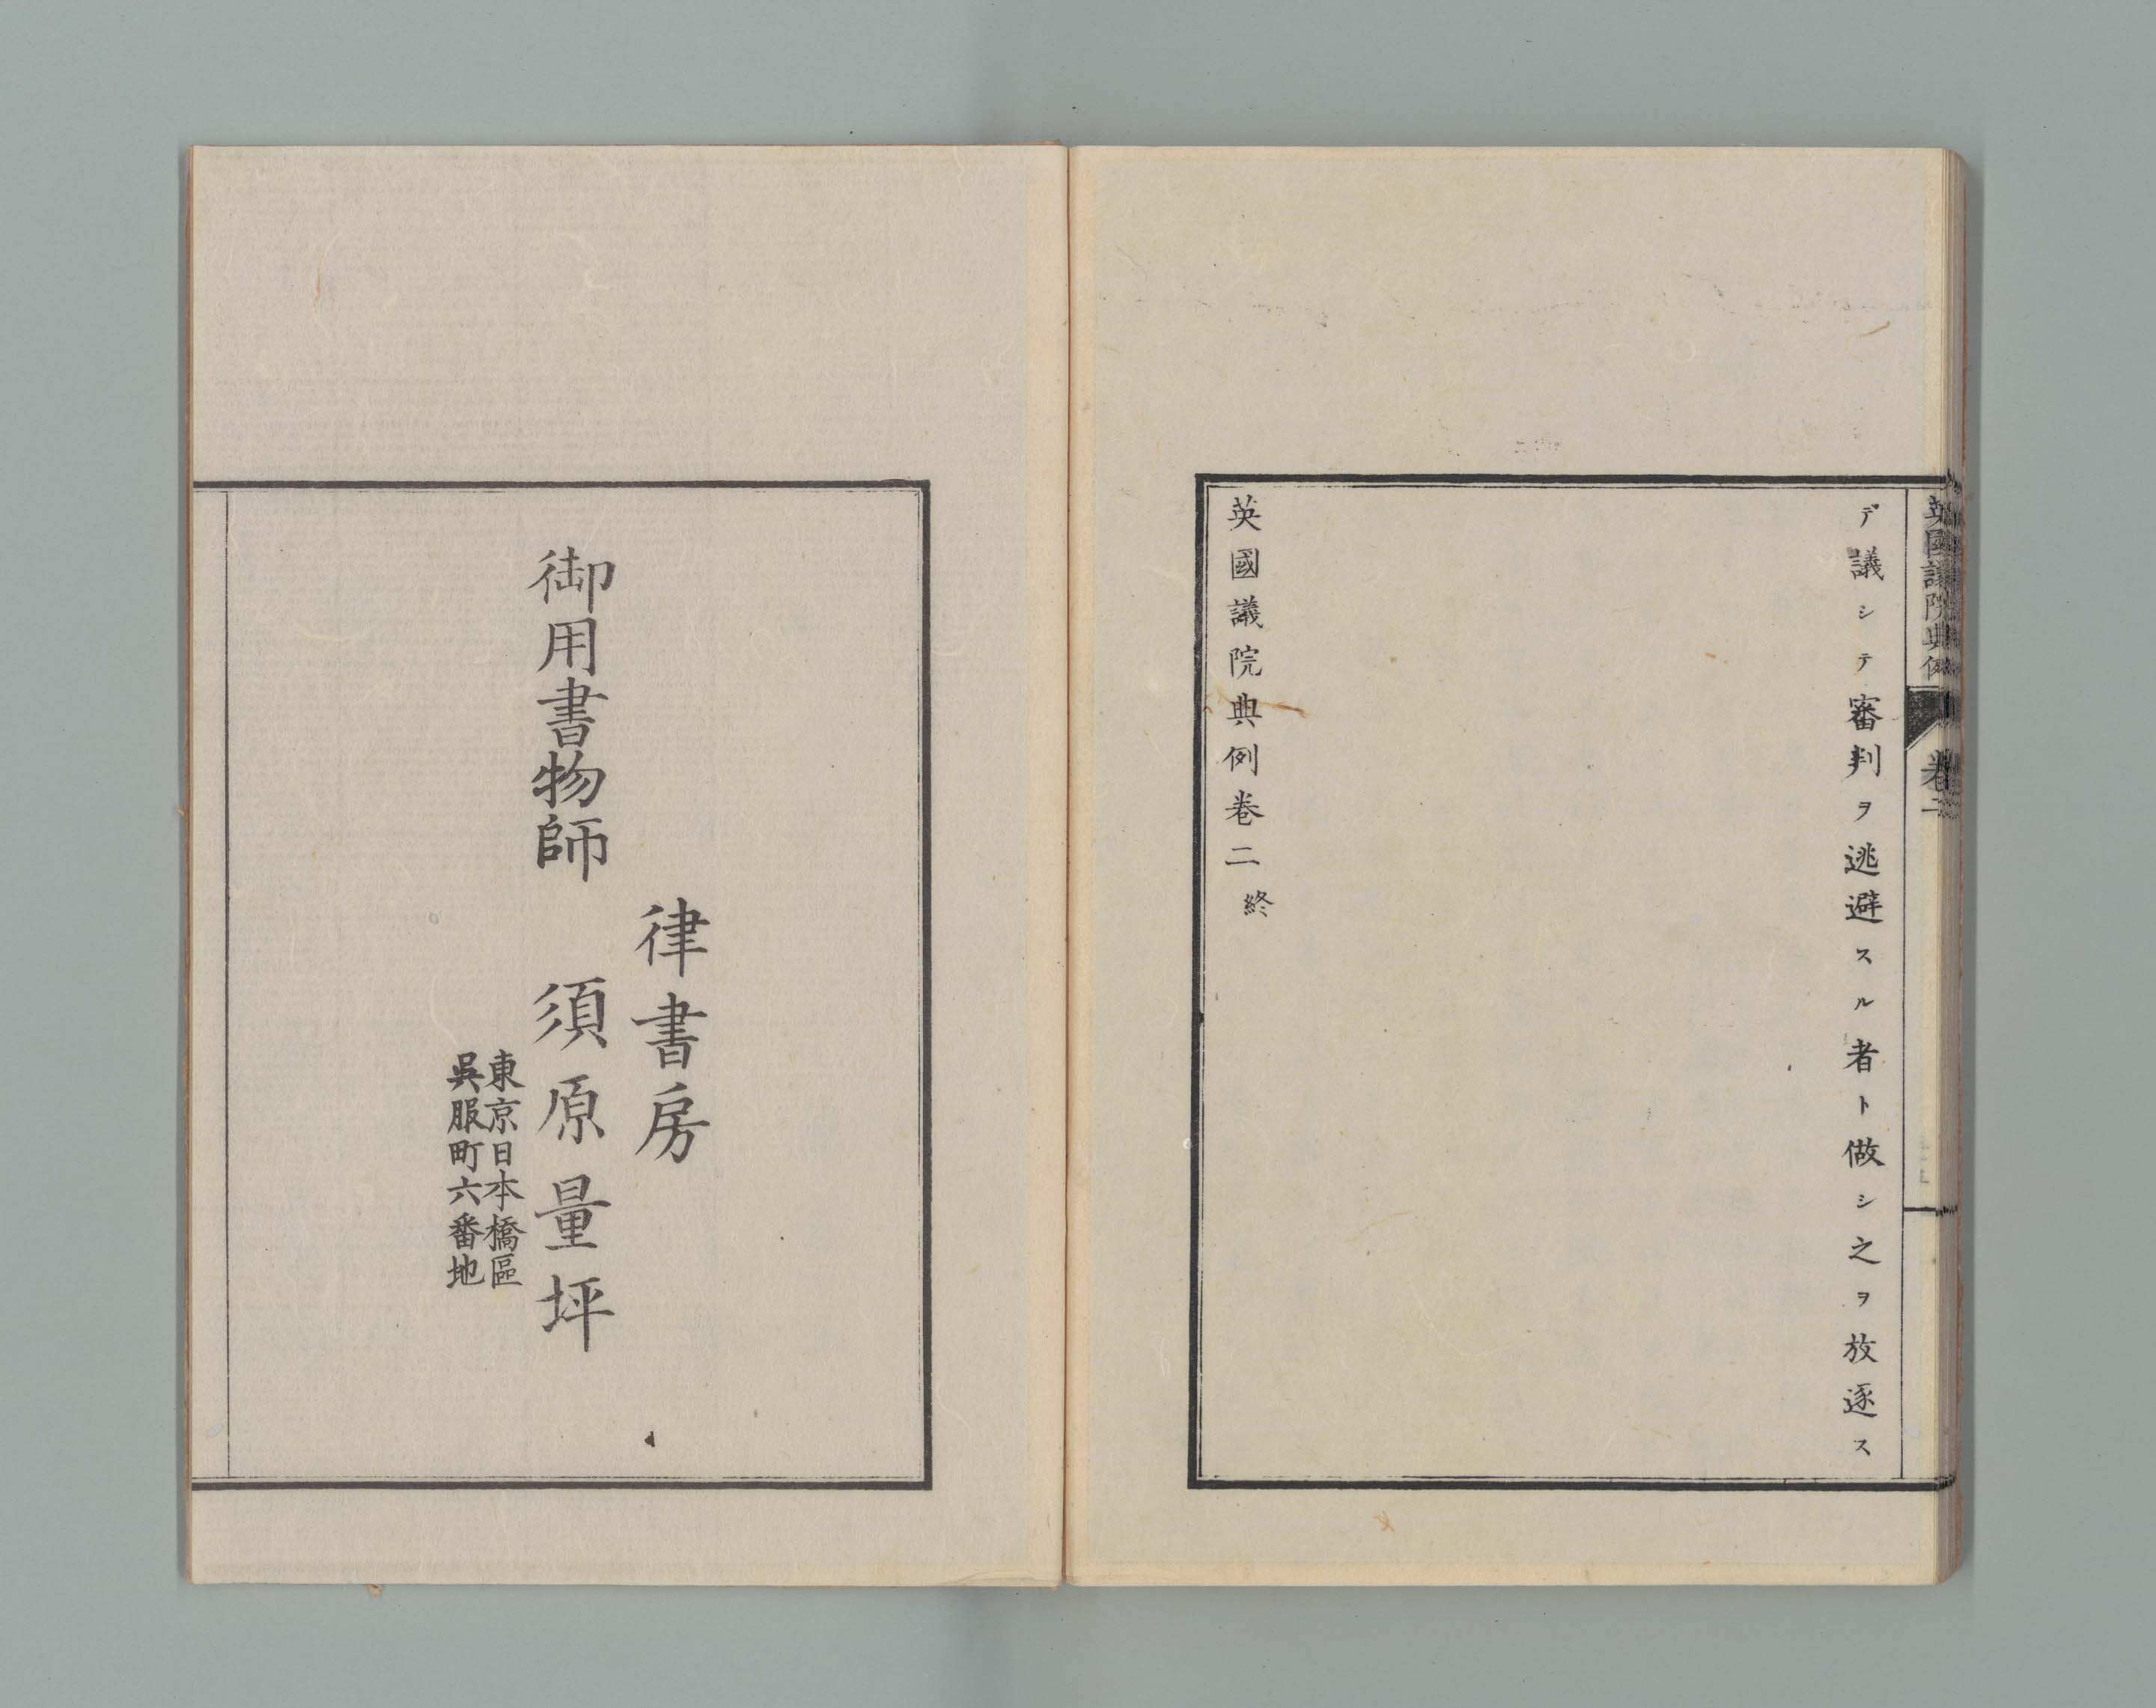 英國議院典例 卷二
デ議シテ審判ヲ逃避スル者ト做シ之ヲ放逐ス
英國議院典例卷二終
律書房
御用書物師 須原量坪
東京日本橋區
吳服町六番地